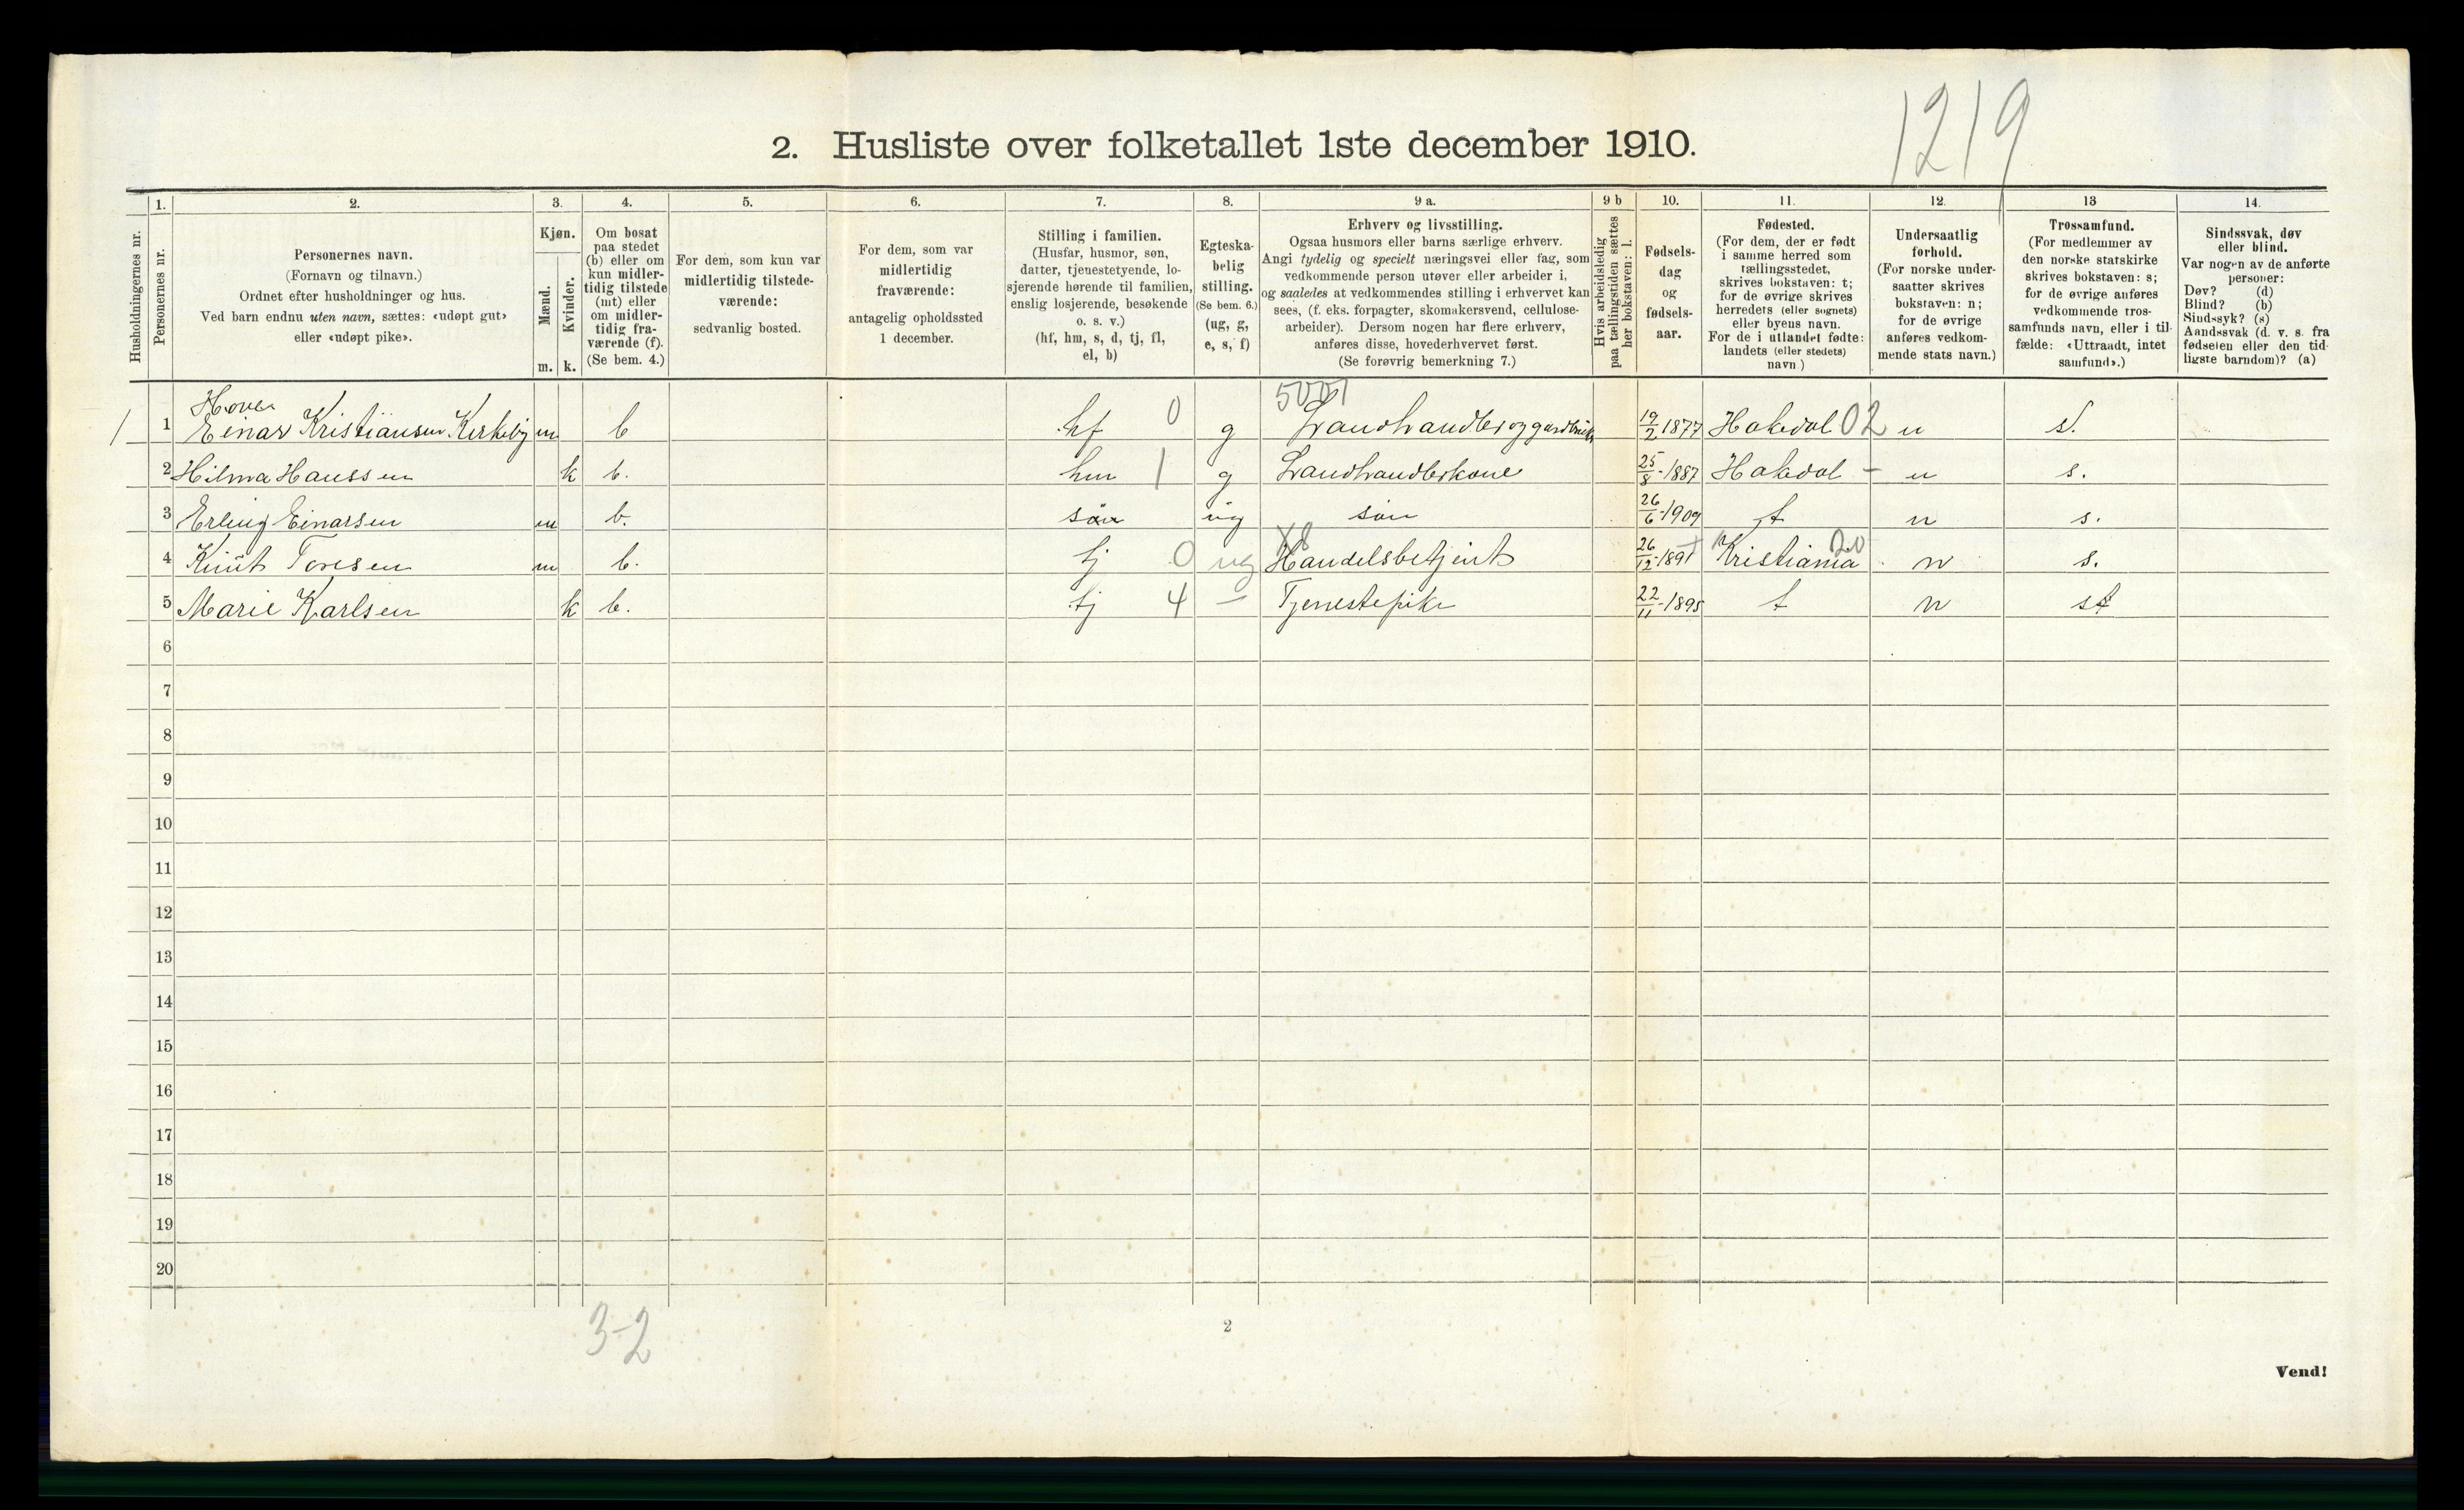 1219
2. Husliste over folketallet 1ste december 1910.
Husholdningernes nr.
1.
Personernes nr.
2.
Personernes navn.
(Fornavn og tilnavn.)
Ordnet efter husholdninger og hus.
Ved barn endnu uten navn, sættes: «udøpt gut»
eller «udøpt pike».
3.
Kjøn.
Mænd.
Kvinder.
m. k.
4.
Om bosat
paa stedet
(b) eller om
kun midler-
tidig tilstede
(mt) eller
om midler-
tidig fra-
værende (f).
(Se bem. 4.)
5.
For dem, som kun var
midlertidig tilstede-
værende:
sedvanlig bosted.
6.
For dem, som var
midlertidig
fraværende:
antagelig opholdssted
1 december.
7.
Stilling i familien.
(Husfar, husmor, søn,
datter, tjenestetyende, lo-
sjerende hørende til familien,
enslig losjerende, besøkende
o. s. v.)
(hf, hm, s, d, tj, fl,
el, b)
8.
Egteska-
belig
stilling.
(Se bem. 6.)
(ug, g,
e, s, f)
9 a.
Erhverv og livsstilling.
Ogsaa husmors eller barns særlige erhverv.
Angi tydelig og specielt næringsvei eller fag, som
vedkommende person utøver eller arbeider i,
og saaledes at vedkommendes stilling i erhvervet kan
sees, (f. eks. forpagter, skomakersvend, cellulose-
arbeider). Dersom nogen har flere erhverv,
anføres disse, hovederhvervet først.
(Se forøvrig bemerkning 7.)
9 b
Hvis arbeidsledig
paa tællingstiden sættes
her bokstaven: l.
10.
Fødsels-
dag
og
fødsels-
aar.
11.
Fødested.
(For dem, der er født
i samme herred som
tællingsstedet,
skrives bokstaven: t;
for de øvrige skrives
herredets (eller sognets)
eller byens navn.
For de i utlandet fødte:
landets (eller stedets)
navn.)
12.
Undersaatlig
forhold.
(For norske under-
saatter skrives
bokstaven: n;
for de øvrige
anføres vedkom-
mende stats navn.)
13
Trossamfund.
(For medlemmer av
den norske statskirke
skrives bokstaven: s;
for de øvrige anføres
vedkommende tros-
samfunds navn, eller i til-
fælde: «Uttraadt, intet
samfund».)
14.
Sindssvak, døv
eller blind.
Var nogen av de anførte
personer:
Døv? (d)
Blind? (b)
Sindssyk? (s)
Aandssvak (d. v. s. fra
fødselen eller den tid-
ligste barndom)? (a)
5001
1 1 Einar Kristiansen Kirkeby m b hf 0 g Landhandler og gardbruk 19/2 1877 Hakedal 02 n s.
2 Hilma Hanssen k b. hm 1 g Landhandlerkone 25/8-1887 Hakedal - n s.
3 Erling Einarsen m b. sön ug sön 26/6-1909 t n s.
4 Knut Toresen m b. tj 0 ug Handelsbetjent 26/12-1891 Kristiania 20 n s.
5 Marie Karlsen k b. tj 4 — Tjenestepike 22/11-1895 t n s
6
7
8
9
10
11
12
13
14
15
16
17
18
19
20
3-2
2
Vend!